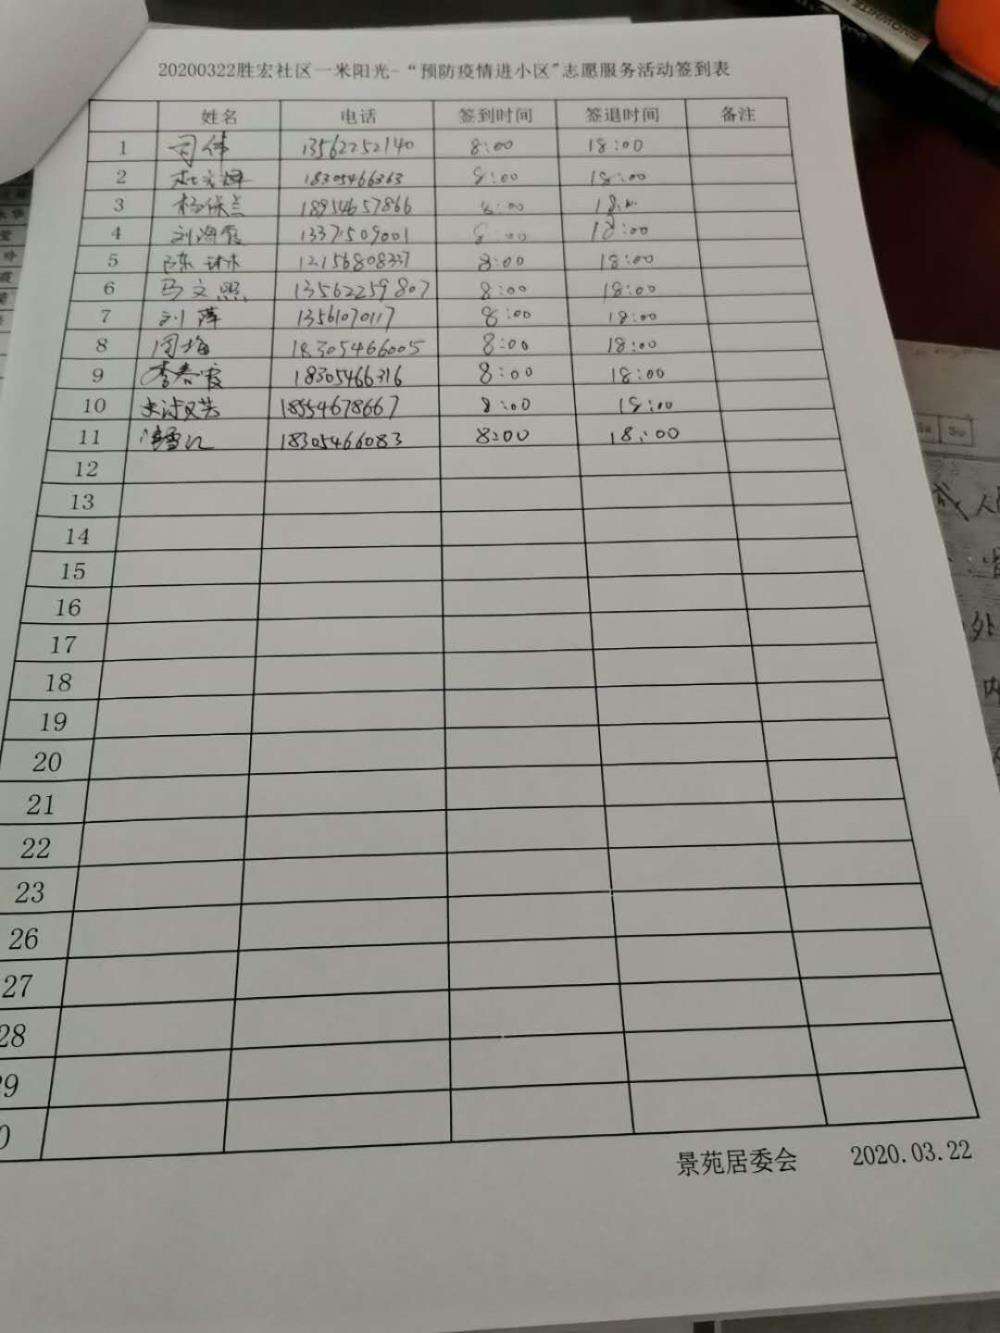 20200322胜宏社区一米阳光-“预防疫情进小区"志愿服务活动签到表
姓名 电话 签到时间 签退时间 备注
1 司伟 13562252140 8:00 18:00
2 18305466363 8:00 18:00
3 杨保兰 18954657866 8:00
4 刘海霞 13371509001 8:00 18:00
5 陈琳 12156808337 8:00 18:00
6 马文照 13562259807 8:00 18:00
7 刘萍 13561070117 8:00 18:00
8 周梅 18305466005 8:00 18:00
9 李春霞 18305466316 8:00 18:00
10 18554678667 8:00 18:00
11 18305466083 8:00 18:00
12
13
14
15
16
17
18
19
20
21
22
23
26
27
28
29
0
景苑居委会 2020.03.22